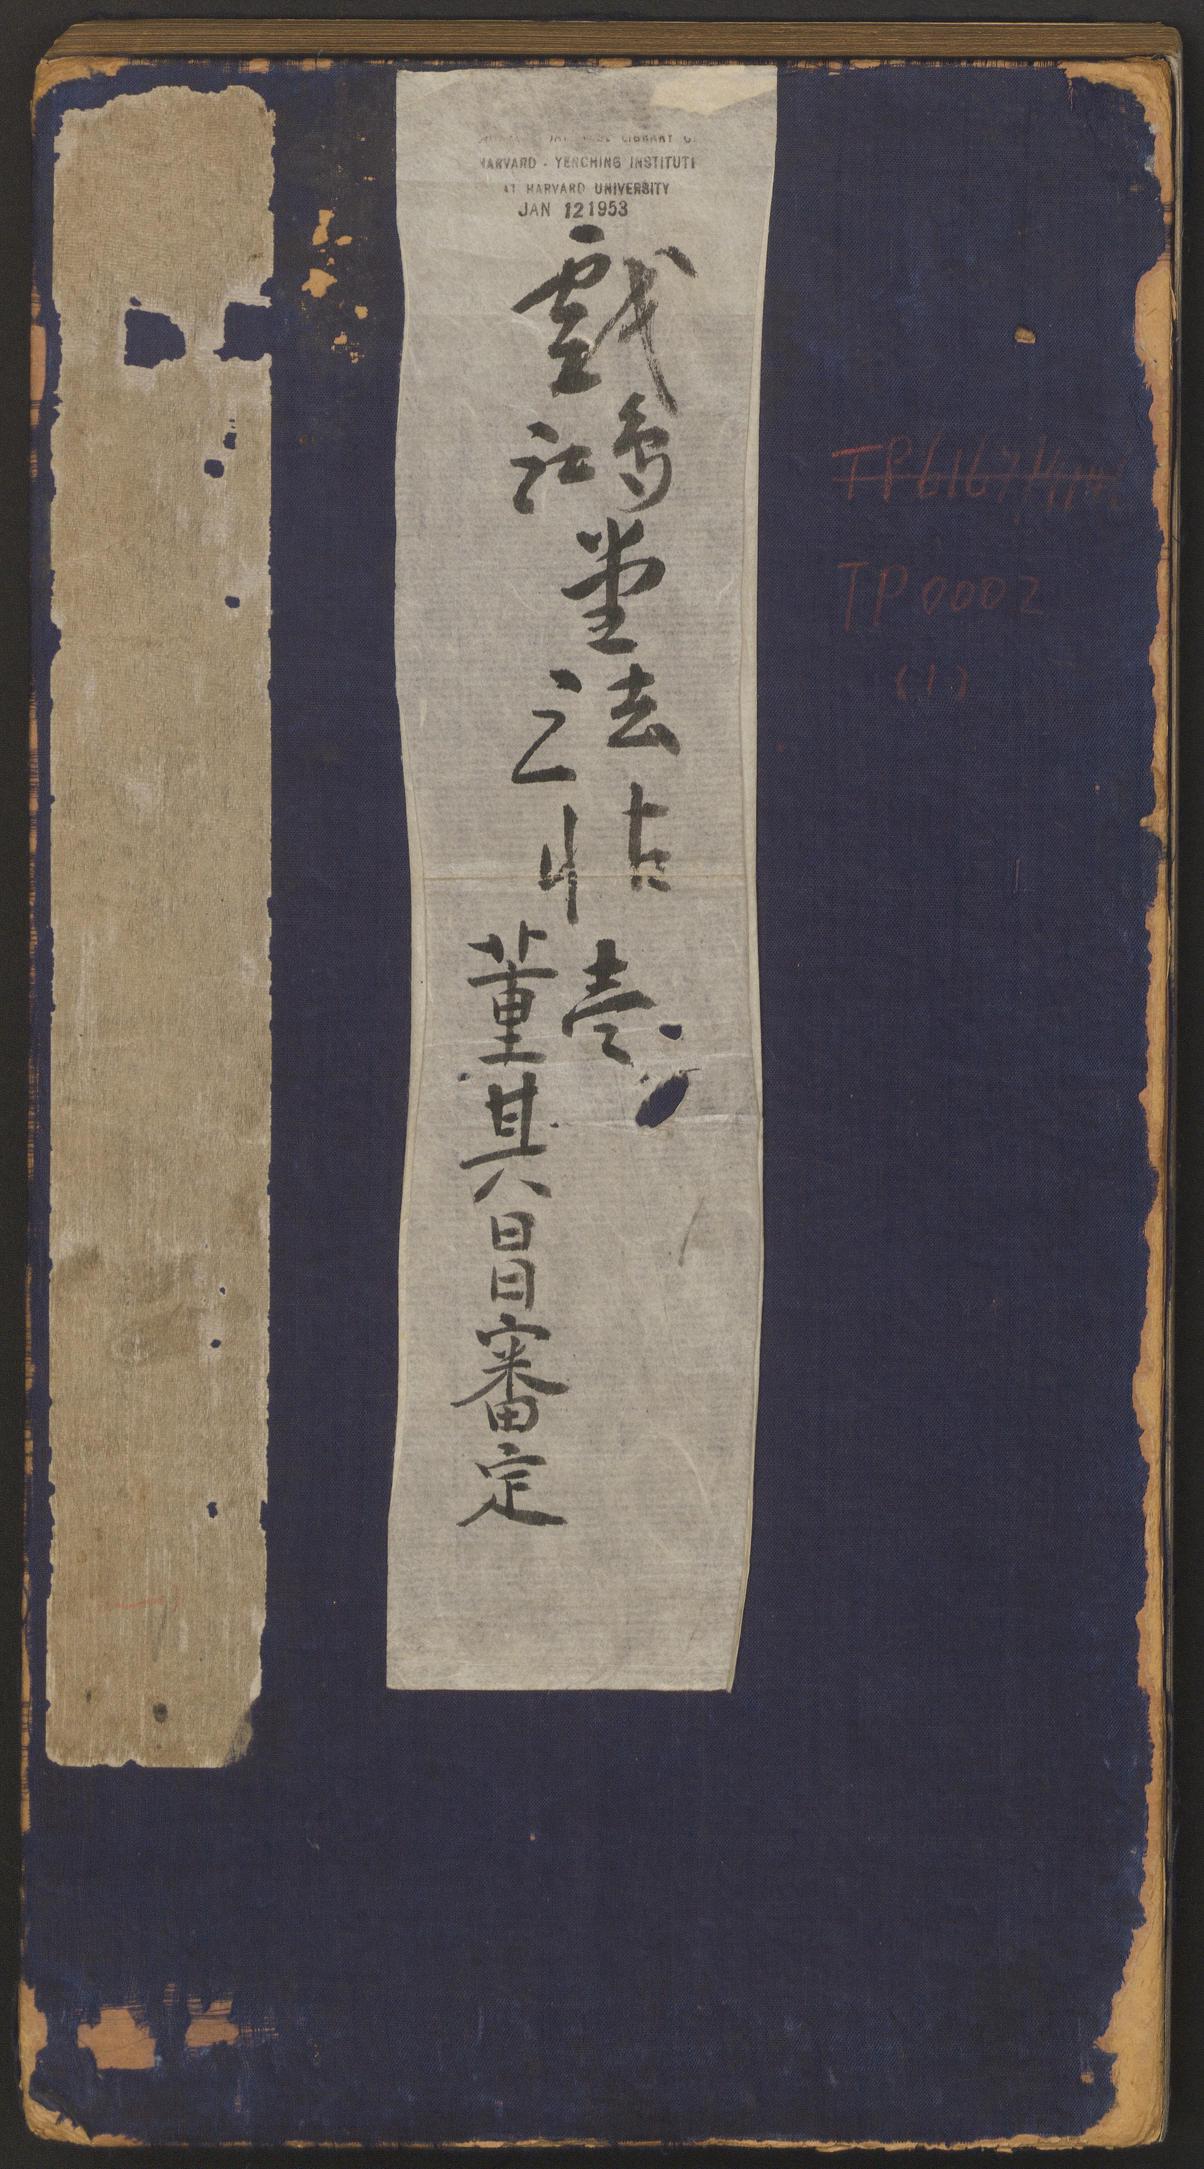 LIBRARY
HARVARD - YENCHING INSTITUTE
AT HARVARD UNIVERSITY
JAN 12 1953
戲鴻堂法帖壹
董其昌審定
TP0002
(1)